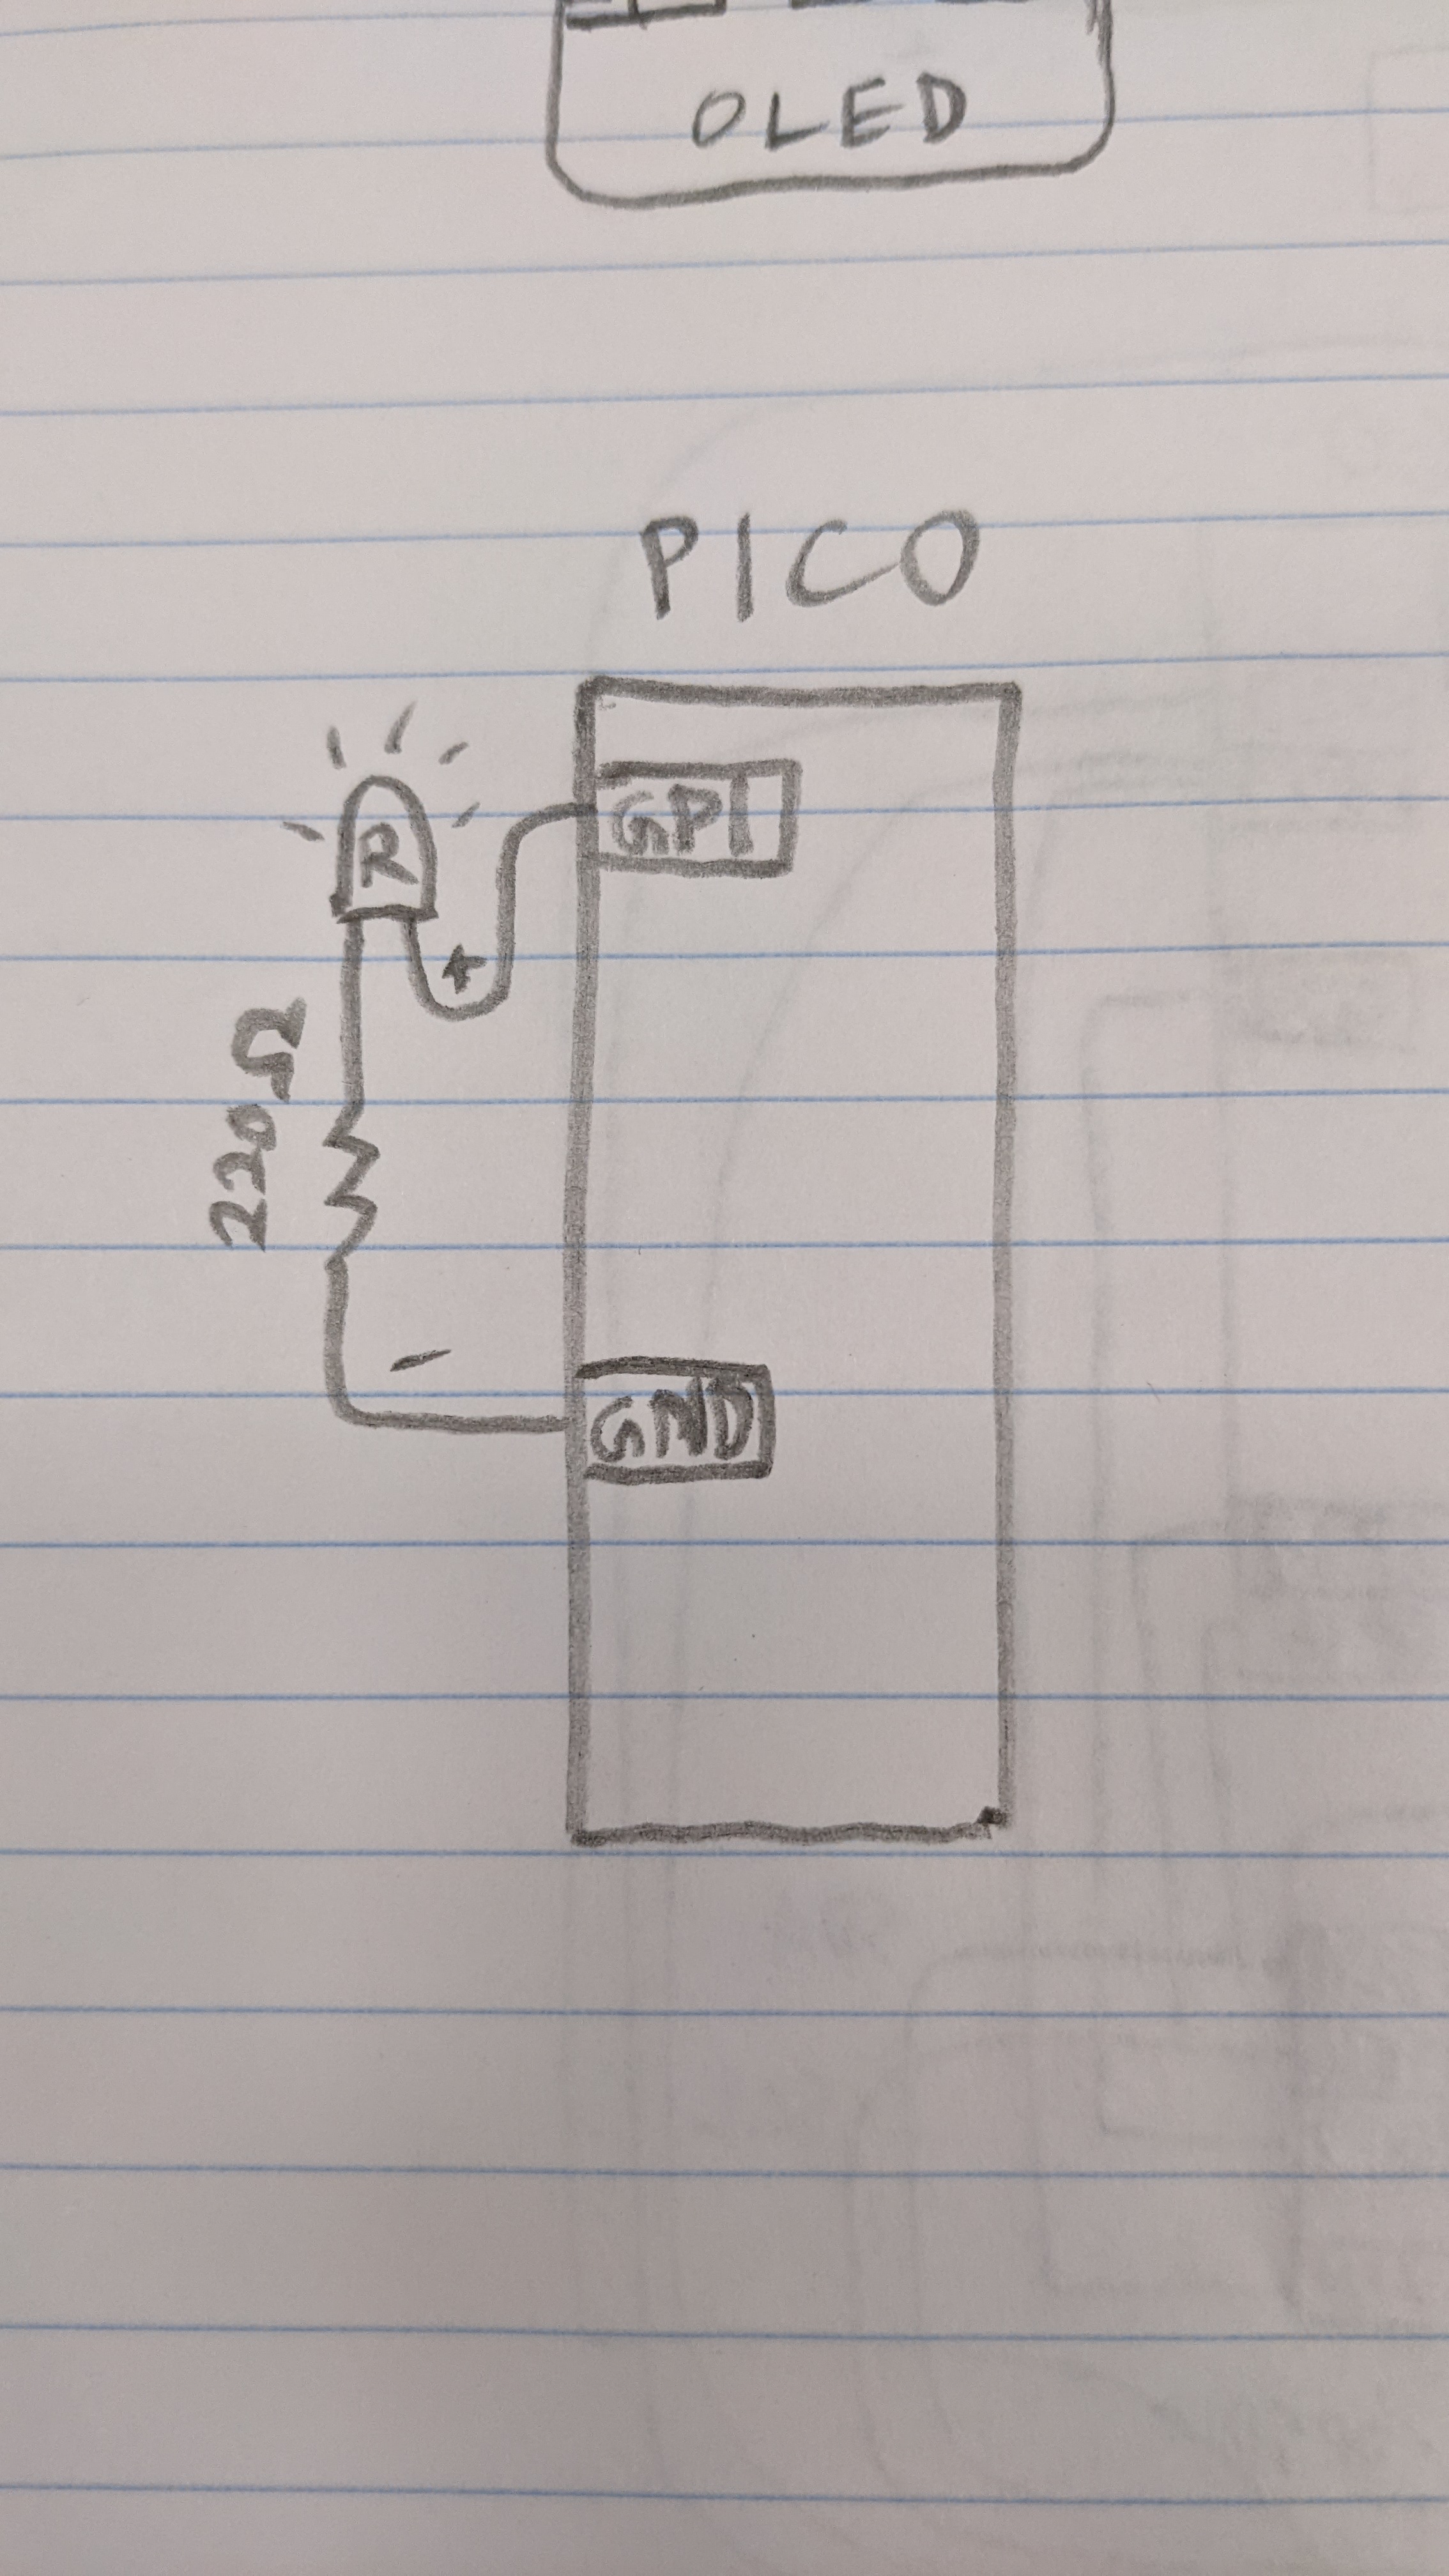 OLED
PICO
R
GP1
+
220Ω
-
GND